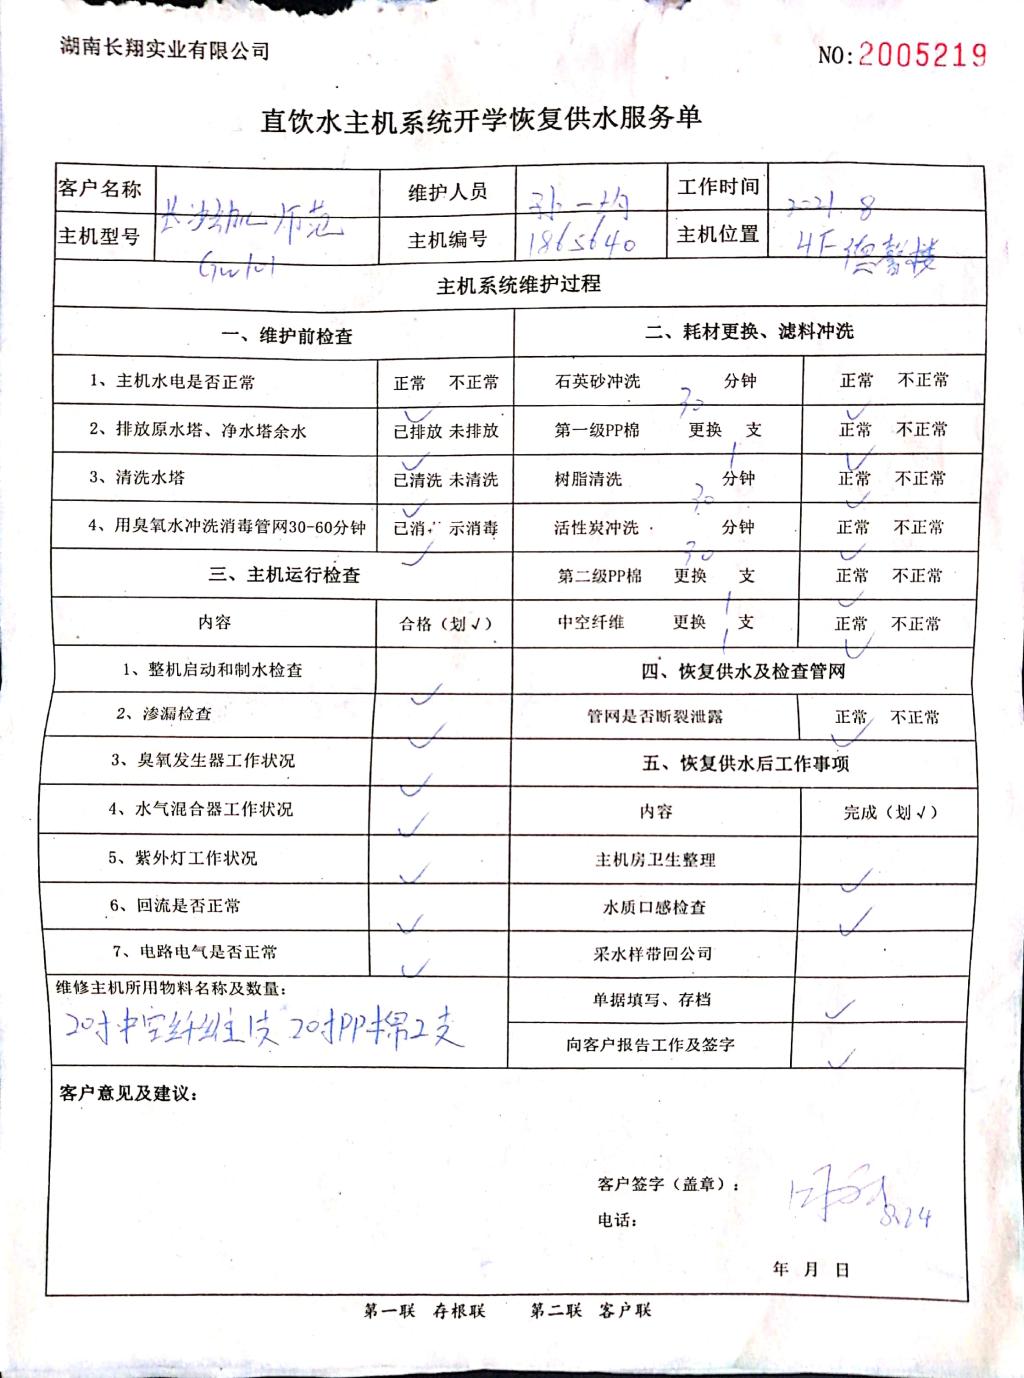 湖南长翔实业有限公司
NO:2005219
直饮水主机系统开学恢复供水服务单
客户名称 长沙幼儿师范 维护人员 孙一均 工作时间 2-21.8
主机型号 主机编号 1865640 主机位置 4F德馨楼
主机系统维护过程
一、维护前检查 二、耗材更换、滤料冲洗
1、主机水电是否正常 正常 ✓ 不正常 石英砂冲洗 30 分钟 正常 ✓ 不正常
2、排放原水塔、净水塔余水 已排放 ✓ 未排放 第一级PP棉 更换 1 支 正常 ✓ 不正常
3、清洗水塔 已清洗 ✓ 未清洗 树脂清洗 30 分钟 正常 ✓ 不正常
4、用臭氧水冲洗消毒管网30-60分钟 已消 ✓ 示消毒 活性炭冲洗 30 分钟 正常 ✓ 不正常
三、主机运行检查 第二级PP棉 更换 1 支 正常 ✓ 不正常
内容 合格（划√） 中空纤维 更换 1 支 正常 ✓ 不正常
1、整机启动和制水检查 ✓ 四、恢复供水及检查管网
2、渗漏检查 ✓ 管网是否断裂泄露 正常 ✓ 不正常
3、臭氧发生器工作状况 ✓ 五、恢复供水后工作事项
4、水气混合器工作状况 ✓ 内容 完成（划√）
5、紫外灯工作状况 ✓ 主机房卫生整理 ✓
6、回流是否正常 ✓ 水质口感检查 ✓
7、电路电气是否正常 ✓ 采水样带回公司
维修主机所用物料名称及数量： 单据填写、存档 ✓
20寸中空纤维1支 20寸PP棉2支 向客户报告工作及签字 ✓
客户意见及建议：
客户签字（盖章）：
8.24
电话：
年 月 日
第一联 存根联 第二联 客户联